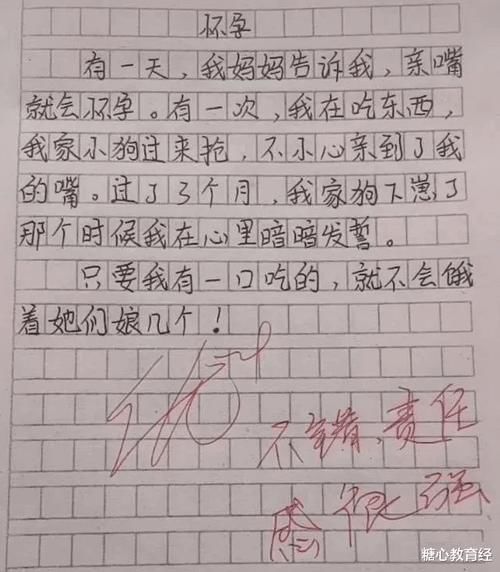 怀孕
有一天，我妈妈告诉我，亲嘴
就会怀孕。有一次，我在吃东西，
我家小狗过来抢，不小心亲到了我
的嘴。过了3个月，我家狗下崽了
那个时候我在心里暗暗发誓。
只要我有一口吃的，就不会饿
着她们娘几个！
不错，责任
感很强
糖心教育经